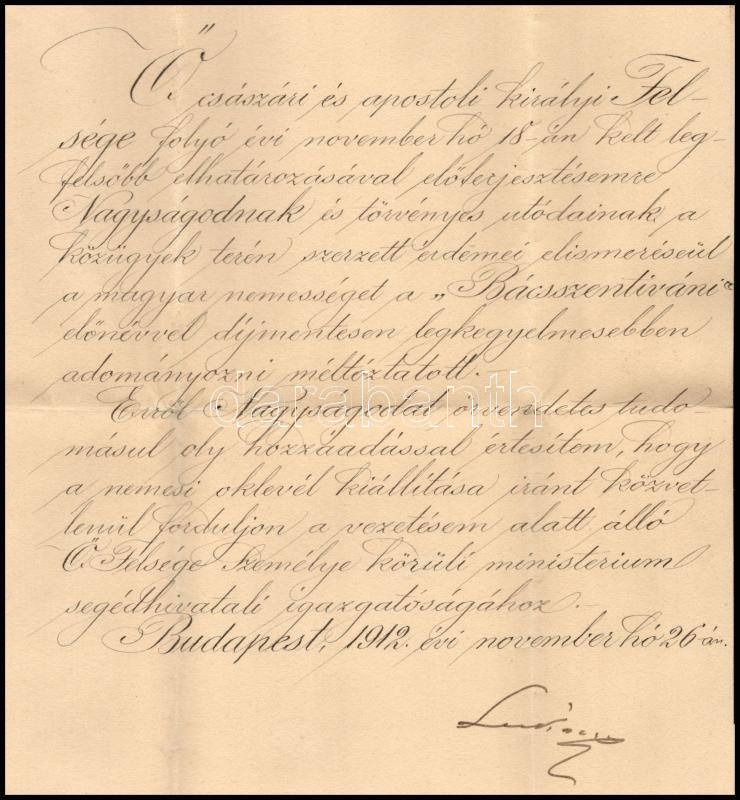 Ő császári és apostoli királyi Fel-
sége folyó évi november hó 18-án kelt leg-
felsőbb elhatározásával előterjesztésemre
Nagyságodnak és törvényes utódainak, a
közügyek terén szerzett érdemei elismeréseül
a magyar nemességet a „Bácsszentiváni"
előnévvel díjmentesen legkegyelmesebben
adományozni méltóztatott.
darabanth
Erről Nagyságodat örvendetes tudo-
másul oly hozzáadással értesítem, hogy
a nemesi oklevél kiállítása iránt közvet-
lenül forduljon a vezetésem alatt álló
Ő Felsége Személye körüli ministerium
segédhivatali igazgatóságához.-
Budapest, 1912. évi november hó 26-án.